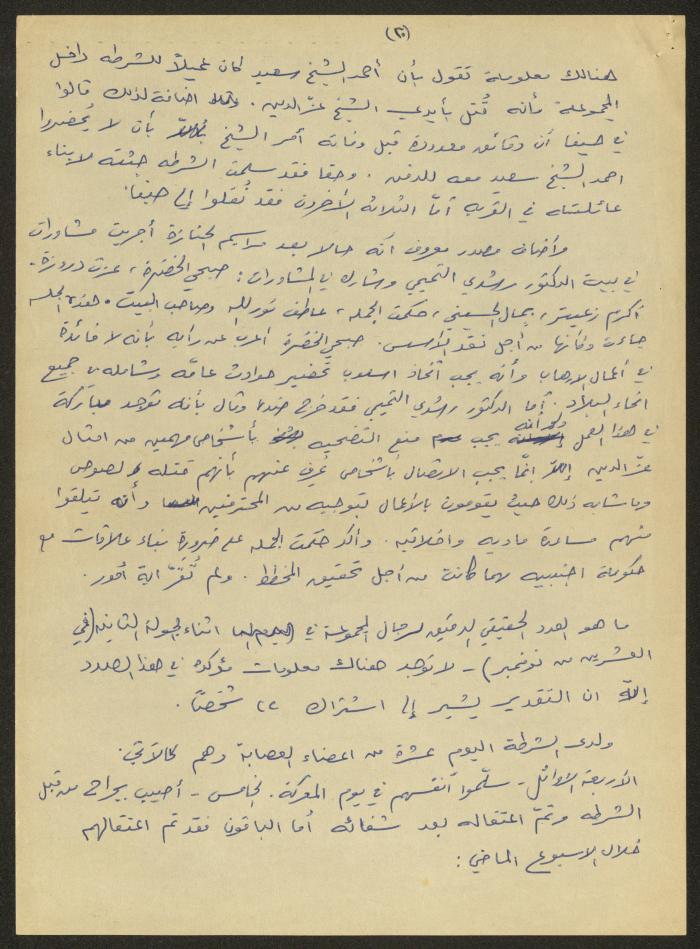 (٢٠)
هنالك معلومة تقول بأن أحمد الشيخ سعيد كان عميلاً للشرطه داخل
المجموعة وأنه قُتل بأيدي الشيخ عز الدين. اضافة لذلك قالوا
في حيفا أن دقائق معدودة قبل وفاته أمر الشيخ بأن لا يُحضروا
احمد الشيخ سعيد معه للدفن. وحقا فقد سلمت الشرطه جثته لابناء
عائلته في القريه أمّا الثلاثه الآخرون فقد نُقلوا إلى حيفا.
وأضاف مصدر معروف أنه حالا بعد مراسيم الجنازة أجريت مشاورات
في بيت الدكتور رشدي التميمي وشارك في المشاورات: صبحي الخضرة، عزت دروزة،
أكرم زعيتر، جمال الحسيني، حكمت الجمله، عاطف نورالله وصاحب البيت. هذه الجلسه
جاءت وكأنها من أجل نقد الأسس. صبحي الخضرة أعرب عن رأيه بأنه لا فائدة
في أعمال الارهاب وأنه يجب اتخاذ اسلوب تحضير حوادث عامّه وشامله في جميع
انحاء البلاد. أما الدكتور رشدي التميمي فقد خرج ضدها وقال بأنه توجد مباركة
في هذا العمل ولكنه يجب منع التضحيه بأشخاص مهمين من امثال
عز الدين إنمّا يجب الاتصال بأشخاص عُرف عنهم بأنهم قتله ولصوص
وما شابه ذلك حيث يقومون بالأعمال بتوجيه من المحترفين وأن يتلقوا
منهم مساعدة ماديه واخلاقيه. وأكد حكمت الجمله على ضرورة بناء علاقات مع
حكومة اجنبيه مهما كانت من أجل تحقيق المخطط. ولم تُقرّ اية أمور.
ما هو العدد الحقيقي الدقيق لرجال المجموعة في اثناء الجولة الثانيه (في
العشرين من نوفمبر) - لا توجد هناك معلومات مؤكده في هذا الصدد
إلاّ ان التقدير يشير إلى اشتراك ٢٢ شخصًا.
ولدى الشرطة اليوم عشرة من اعضاء العصابة وهم كالآتي:
الأربعة الأوائل - سلّموا أنفسهم في يوم المعركة. الخامس - أصيب بجراح من قبل
الشرطه وتمّ اعتقاله بعد شفائه أما الباقون فقد تم اعتقالهم
خلال الاسبوع الماضي: